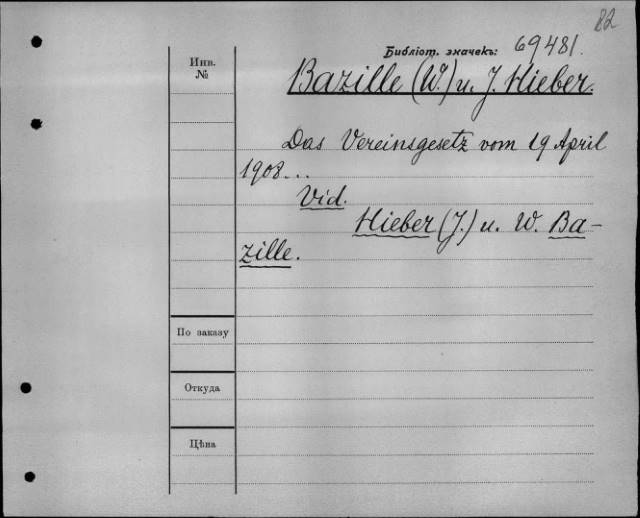 82
Библіот. значекъ: 69481.
Инв.
№
Bazille (W.) u. J. Hieber.
Das Vereinsgesetz vom 19 April
1908...
Vid.
Hieber (J.) u. W. Ba-
zille.
По заказу
Откуда
Цѣна